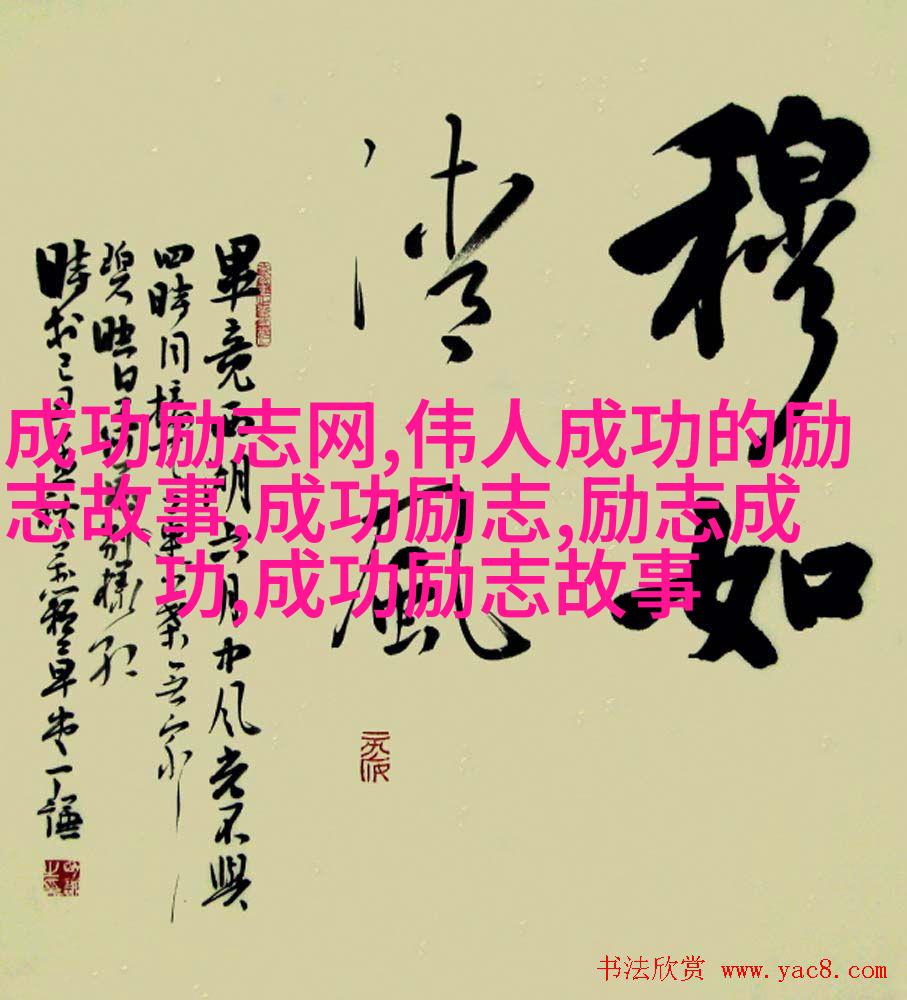 穆如
清風
畢竟西湖六月中風光不與
四時同接天蓮葉無窮
碧映日荷花別樣紅
成功励志网,伟人成功的励
志故事,成功励志,励志成
功,成功励志故事
书法欣赏 www.yac8.com